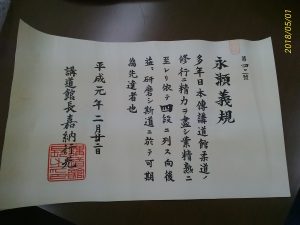 永瀬義規
多年日本傳講道館柔道ノ
修行ニ精力ヲ盡シ業精熟ニ
至レリ依テ四段ニ列ス向後
益々研磨シ斯道ニ於テ可期
為先達者也
平成元年二月廿二日
講道館長嘉納行光
2018/05/01